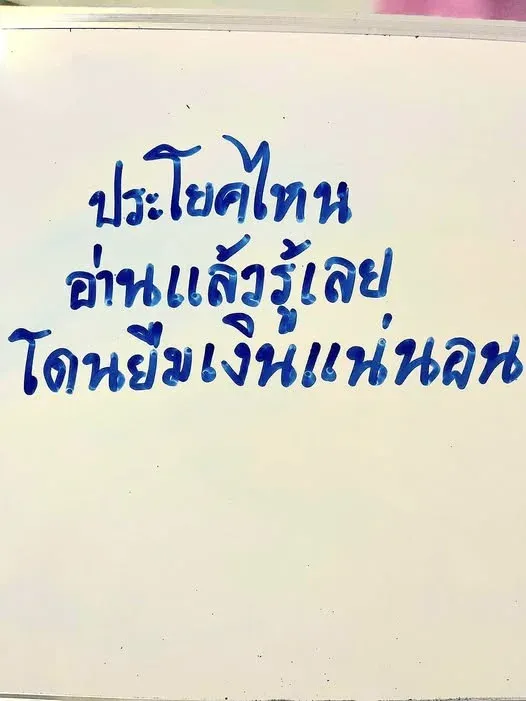 ประโยคไหน
อ่านแล้วรู้เลย
โดนยืมเงินแน่นอน